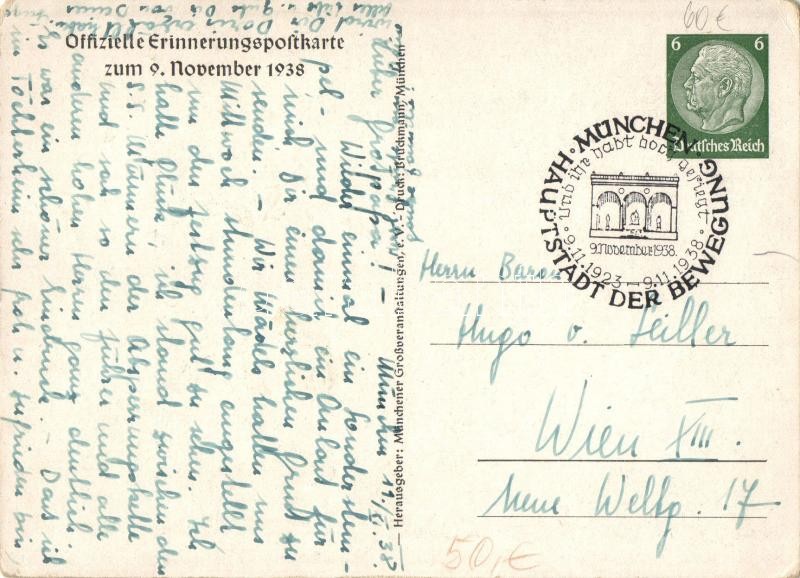 60 €
Offizielle Erinnerungspostkarte
zum 9. November 1938
6 6
Deutsches Reich
MÜNCHEN · HAUPTSTADT DER BEWEGUNG ·
Und ihr habt doch gesiegt
9. November 1938.
9.11.1923 – 9.11.1938
— Herausgeber: Münchener Großveranstaltungen, e.V. – Druck: Bruckmann, München —
München 11/XI. 38.
Lieber Großpapa! –
Wieder einmal ein Sonderstem-
pel – und damit ein Anlass für
mich Dir einen herzlichen Gruß zu
senden. – Wir Mädels hatten uns
Mittwoch stundenlang angestellt
um den Festzug gut zu sehen. Ich
hatte Glück, ich stand zwischen den
S.S. Männern der Absperrungskette
und sah so den Führer und alle
anderen hohen Herren ganz deutlich.
Es war ein schöner Eindruck. – Das ich
im Töchterheim sehr froh u. zufrieden bin
wird Dir Dorie erzählt haben.
Herrn Baron
Hugo v. Seiller
Wien XIII.
Neue Weltg. 17
50,€